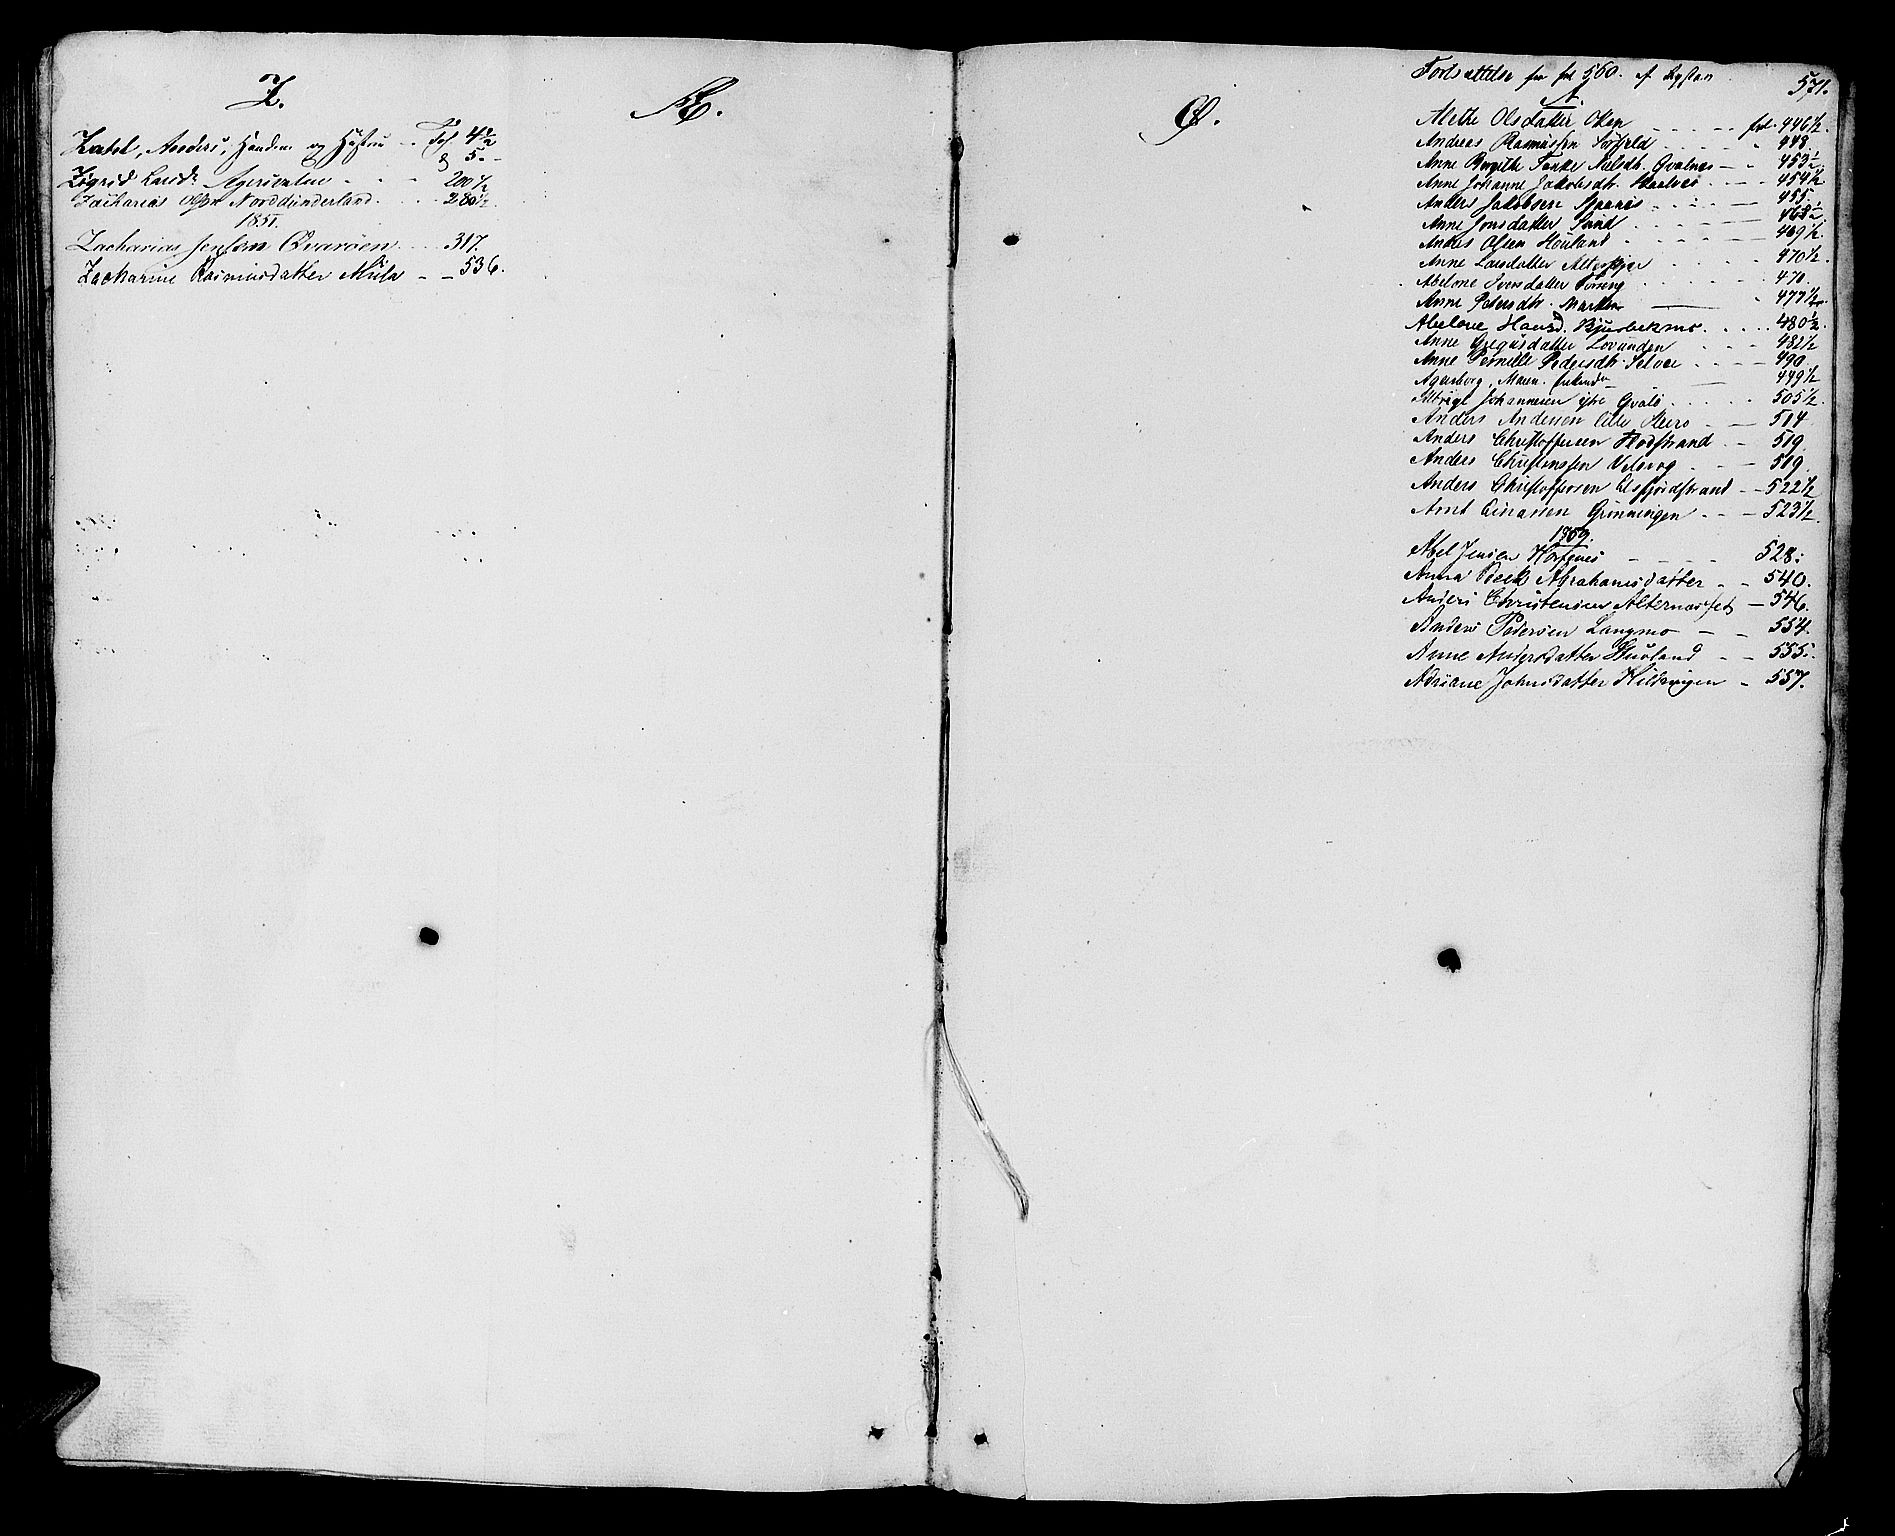 Z.
Zahl, Anders, Handm. og Hustru . . Fol. 4½
& 5. -
Zigrid Larsd. Agersvalen - - - 200½
Zacharias Olsen Norddunderland . . . 280½
1851.
Zacharias Jensen Qvaröen . . . 317.
Zacharine Rasmusdatter Mula - - 536.
Æ.
Ø.
Fortsættelse fra fol 560. af
571.
A
Alethe Olsdatter - - - - - fol. 446½.
Andreas Rasmussen . . . . . " 448.
Anne Birgithe Fonke Qvalnes - - " 453½
Anne Johanne Jakobsdtr. - . - - 454½
Anders Jakobsen . . . - 455.
Anne Jonsdatter Sund - - - - - 463½
Anders Olsen Houland . - - - - - 469½.
Anne Larsdatter . . . . . 470½.
Abelone Iversdatter Forseng . . . . . . 470.
Anne Petersdtr. Marken ——— " 477½.
Abelone Hansd. Bjurbekmo . . . . . 480½.
Anne Gregusdatter Lovunden . . . . 482½
Anne Pernille Pedersdtr. Selvær . . . - 490.
Agersborg, Maren - 499½
Johannesen Qvalö . . . . . 505½.
Anders Andersen Lille . - - 514
Anders Christoffersen Rodstrand - - 519.
Anders Christensen . - - 519.
Anders Christoffersen Elsfjordstrand - - 522½
Arnt Einarsen Grønningen - - - 523½.
1869.
Abel Jensen - - - - 528.
Anna Beck Abrahamsdatter - - 540.
Anders Christensen Alternæsset - 546.
Anders Pedersen Langmo - - 554.
Anne Andersdatter - - 555.
Adriane Johnsdatter Hildvigen - 557.